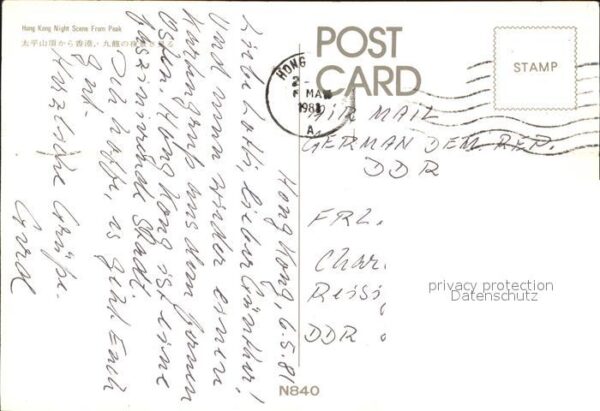 Hong Kong Night Scene From Peak
太平山頂から香港、九龍の夜景を見る
POST
CARD
STAMP
HONG
MAR
1981
A
AIR MAIL
GERMAN DEM. REP.
DDR
FRL.
Char.
Reisi
DDR
privacy protection
Datenschutz
N840
Hong Kong, 6.5.81
Liebe Lotti, lieber Günther!
Und nun wieder einen
Kartengruß aus dem fernen
Osten. Hong Kong ist eine
faszinierende Stadt.
Ich hoffe, es geht Euch
gut.
Herzliche Grüße
Gerd